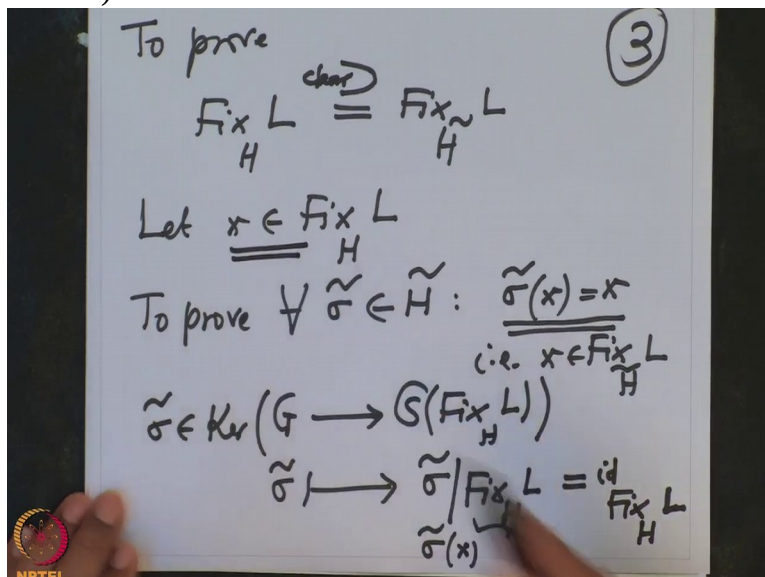 To prove
③
clear ⊃
Fix_H L = Fix_H̃ L
Let x ∈ Fix_H L
To prove ∀ σ̃ ∈ H̃ : σ̃(x) = x
i.e. x ∈ Fix_H̃ L
σ̃ ∈ Ker (G ⟶ 𝔖(Fix_H L))
σ̃ ⟼ σ̃|Fix_H L = id_Fix_H L
σ̃(x)
NPTEL